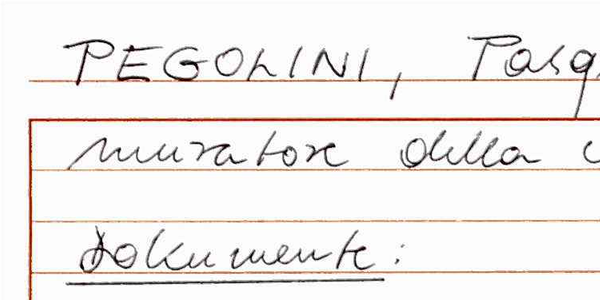 PEGOLINI, Pasq
muratore della c
Dokumente: